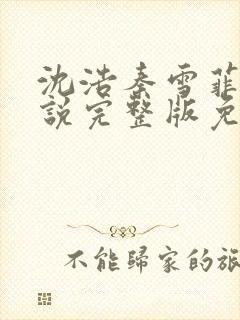 沈浩秦雪菲
說完整版免
不能歸家的旅